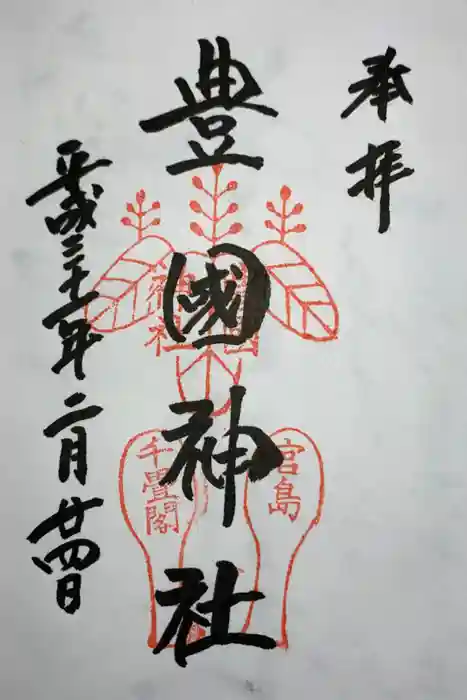 奉拝
豊國神社
豊國
神社
宮島
千畳閣
平成三十一年二月廿四日